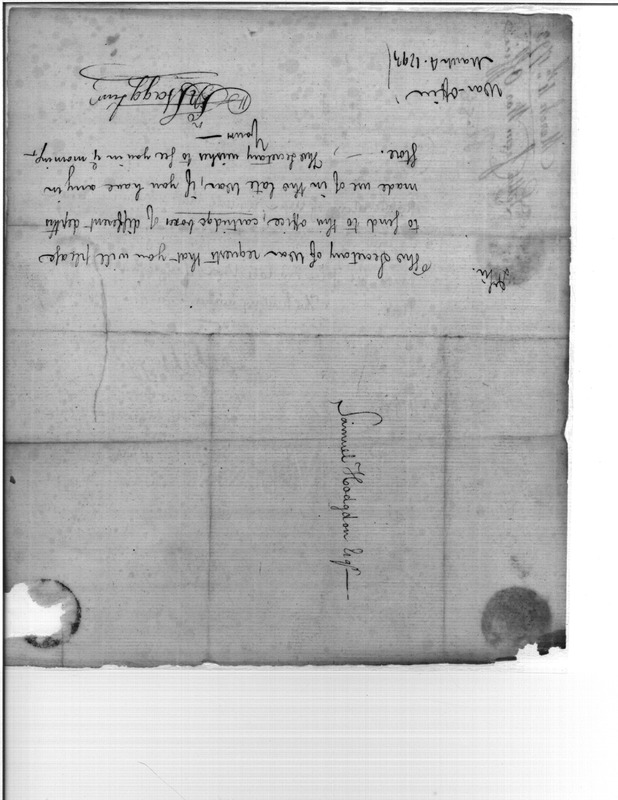 Sir.
The Secretary of War requests that you will please
to send to this office, cartridge boxes of different depths
made use of in the late War, if you have any in
Store. — The Secretary wishes to see you in y morning —
Yours —
Jn Stagg Junr
War-Office
March 4. 1793
Samuel Hodgdon Esqr —